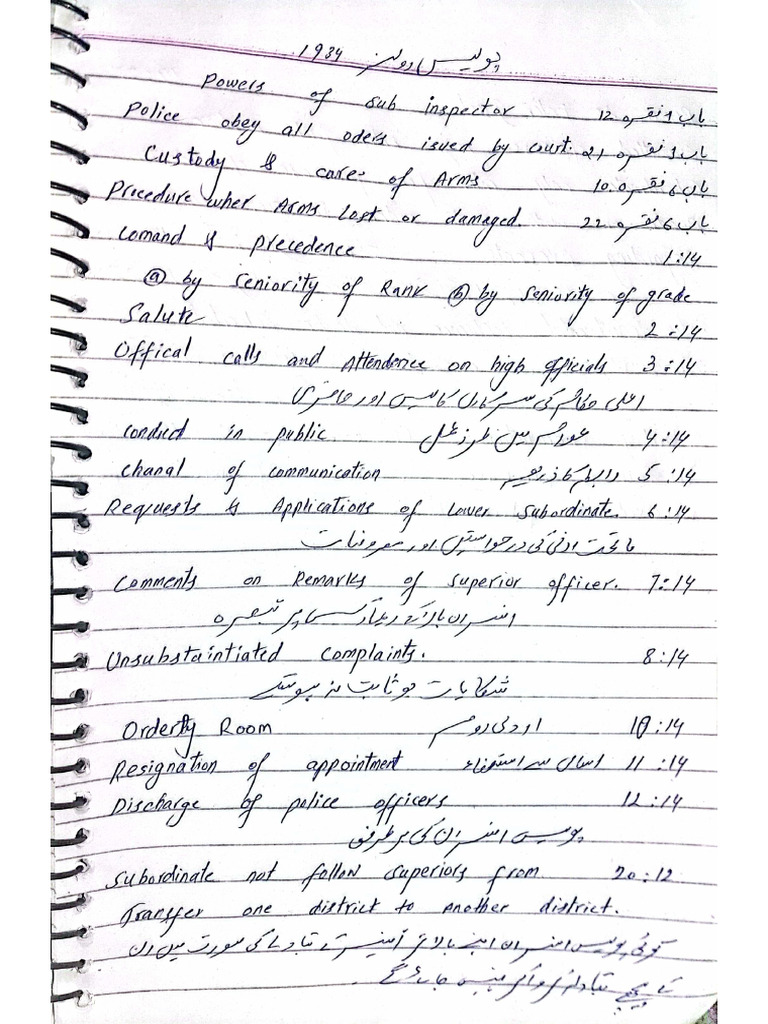 پولیس رولز 1934
Powers of sub inspector باب 1 فقره 12
Police obey all oders issued by court. باب 1 فقره 21
Custody & care of Arms باب 6 فقره 10
Procedure when Arms Lost or damaged. باب 6 فقره 22
Comand & precedence 1:14
ⓐ by seniority of Rank ⓑ by seniority of grade
Salute 2:14
Offical calls and Attendence on high officials 3:14
اعلی حکام کی سرکاری کالیں اور حاضری
conduct in public عوام میں طرز عمل 4:14
chanal of communication رابطہ کا ذریعہ 5:14
Requests & Applications of Lower Subordinate. 6:14
ماتحت ادنی کی درخواستیں اور معروضات
Comments on Remarks of superior officer. 7:14
افسران بالا کے ریمارکس پر تبصرہ
Unsubstaintiated complaints. 8:14
شکایات جو ثابت نہ ہوسکے
Orderly Room اردلی روم 10:14
Resignation of appointment اسامی سے استعفاء 11:14
Discharge of police officers 12:14
پولیس افسران کی برطرفی
Subordinate not follow superiors from 20:12
Transfer one district to another district.
کوئی پولیس افسران اپنے بالا تر آفیسر کے تبادلے کی صورت میں ان
کے پیچھے تبادلہ نہیں جائے گے